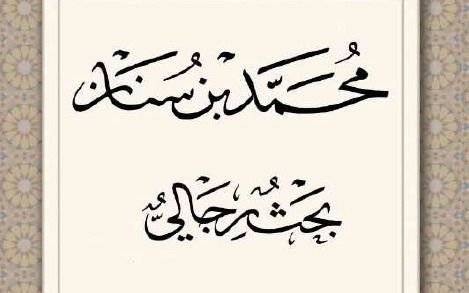 محمد بن سنان
بحث رجالي